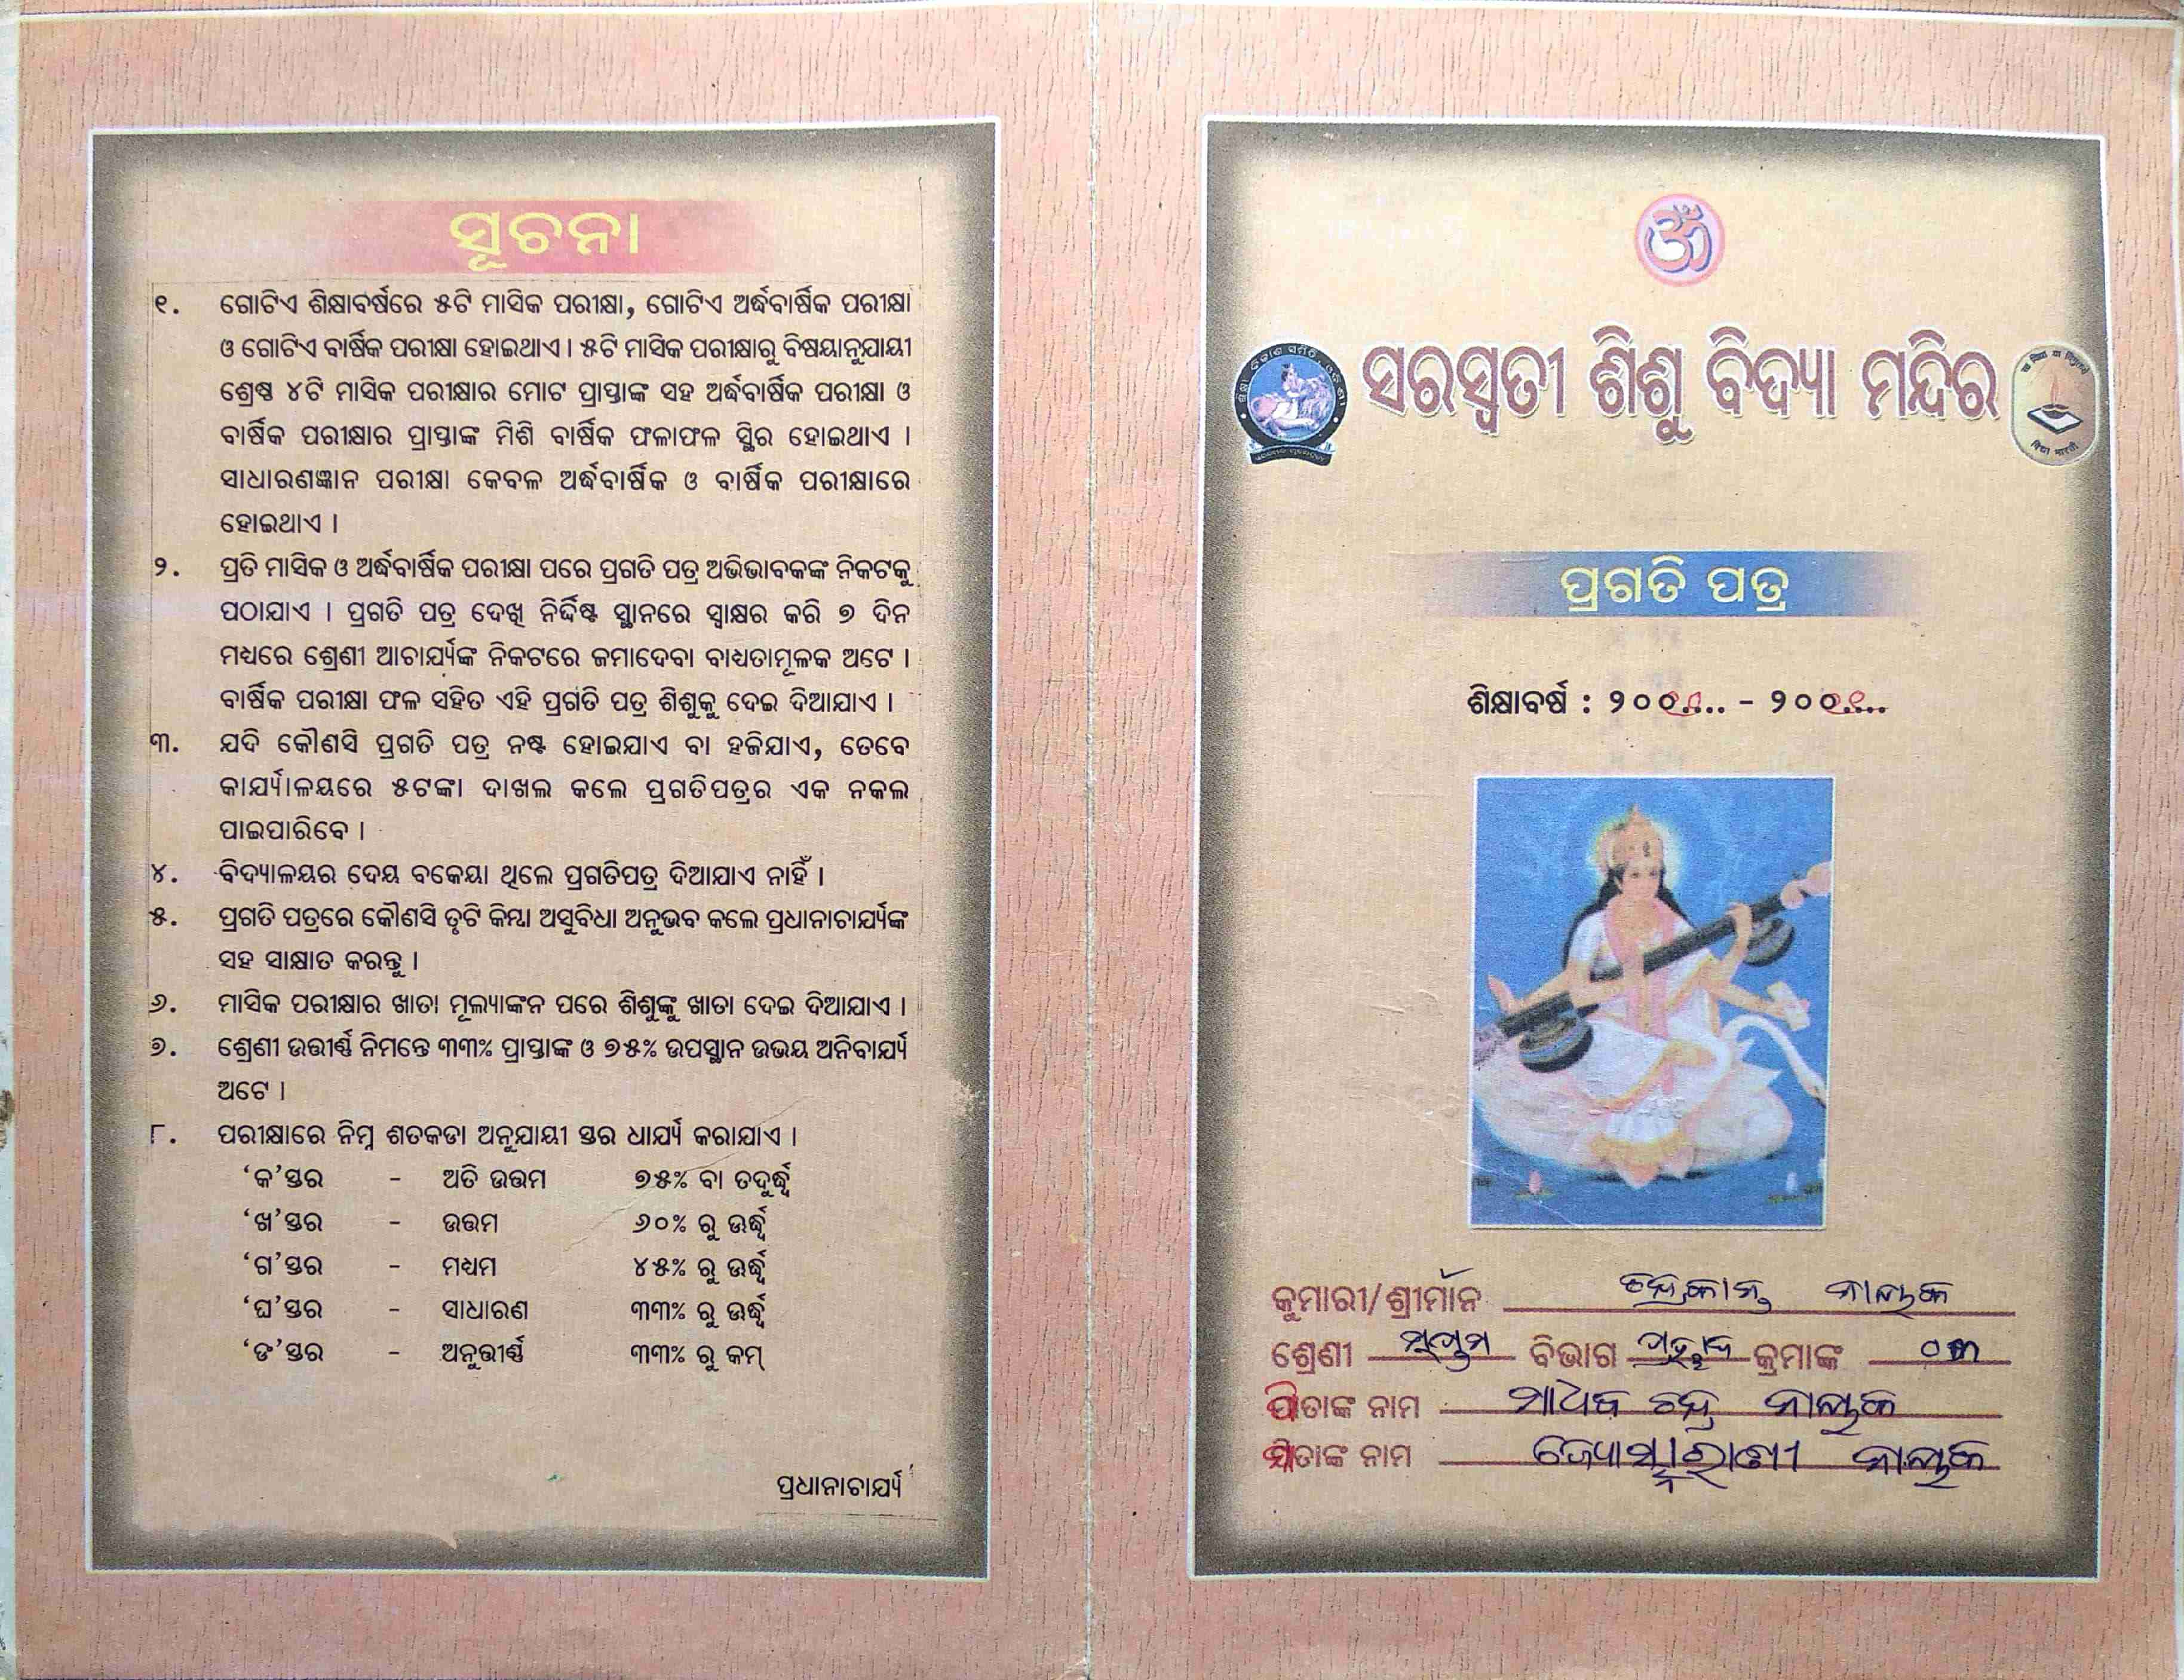 ସୂଚନା
୧. ଗୋଟିଏ ଶିକ୍ଷାବର୍ଷରେ ୫ଟି ମାସିକ ପରୀକ୍ଷା, ଗୋଟିଏ ଅର୍ଦ୍ଧବାର୍ଷିକ ପରୀକ୍ଷା
ଓ ଗୋଟିଏ ବାର୍ଷିକ ପରୀକ୍ଷା ହୋଇଥାଏ । ୫ଟି ମାସିକ ପରୀକ୍ଷାରୁ ବିଷୟାନୁଯାୟୀ
ଶ୍ରେଷ୍ଠ ୪ଟି ମାସିକ ପରୀକ୍ଷାର ମୋଟ ପ୍ରାପ୍ତାଙ୍କ ସହ ଅର୍ଦ୍ଧବାର୍ଷିକ ପରୀକ୍ଷା ଓ
ବାର୍ଷିକ ପରୀକ୍ଷାର ପ୍ରାପ୍ତାଙ୍କ ମିଶି ବାର୍ଷିକ ଫଳାଫଳ ସ୍ଥିର ହୋଇଥାଏ ।
ସାଧାରଣଜ୍ଞାନ ପରୀକ୍ଷା କେବଳ ଅର୍ଦ୍ଧବାର୍ଷିକ ଓ ବାର୍ଷିକ ପରୀକ୍ଷାରେ
ହୋଇଥାଏ ।
୨. ପ୍ରତି ମାସିକ ଓ ଅର୍ଦ୍ଧବାର୍ଷିକ ପରୀକ୍ଷା ପରେ ପ୍ରଗତି ପତ୍ର ଅଭିଭାବକଙ୍କ ନିକଟକୁ
ପଠାଯାଏ । ପ୍ରଗତି ପତ୍ର ଦେଖି ନିର୍ଦ୍ଦିଷ୍ଟ ସ୍ଥାନରେ ସ୍ୱାକ୍ଷର କରି ୭ ଦିନ
ମଧ୍ୟରେ ଶ୍ରେଣୀ ଆଚାର୍ଯ୍ୟଙ୍କ ନିକଟରେ ଜମାଦେବା ବାଧ୍ୟତାମୂଳକ ଅଟେ ।
ବାର୍ଷିକ ପରୀକ୍ଷା ଫଳ ସହିତ ଏହି ପ୍ରଗତି ପତ୍ର ଶିଶୁକୁ ଦେଇ ଦିଆଯାଏ ।
୩. ଯଦି କୌଣସି ପ୍ରଗତି ପତ୍ର ନଷ୍ଟ ହୋଇଯାଏ ବା ହଜିଯାଏ, ତେବେ
କାର୍ଯ୍ୟାଳୟରେ ୫ଟଙ୍କା ଦାଖଲ କଲେ ପ୍ରଗତିପତ୍ରର ଏକ ନକଲ
ପାଇପାରିବେ ।
୪. ବିଦ୍ୟାଳୟର ଦେୟ ବକେୟା ଥିଲେ ପ୍ରଗତିପତ୍ର ଦିଆଯାଏ ନାହିଁ ।
୫. ପ୍ରଗତି ପତ୍ରରେ କୌଣସି ତୃଟି କିମ୍ବା ଅସୁବିଧା ଅନୁଭବ କଲେ ପ୍ରଧାନାଚାର୍ଯ୍ୟଙ୍କ
ସହ ସାକ୍ଷାତ କରନ୍ତୁ ।
୬. ମାସିକ ପରୀକ୍ଷାର ଖାତା ମୂଲ୍ୟାଙ୍କନ ପରେ ଶିଶୁଙ୍କୁ ଖାତା ଦେଇ ଦିଆଯାଏ ।
୭. ଶ୍ରେଣୀ ଉତ୍ତୀର୍ଣ୍ଣ ନିମନ୍ତେ ୩୩% ପ୍ରାପ୍ତାଙ୍କ ଓ ୭୫% ଉପସ୍ଥାନ ଉଭୟ ଅନିବାର୍ଯ୍ୟ
ଅଟେ ।
୮. ପରୀକ୍ଷାରେ ନିମ୍ନ ଶତକଡା ଅନୁଯାୟୀ ସ୍ତର ଧାର୍ଯ୍ୟ କରାଯାଏ ।
‘କ’ସ୍ତର – ଅତି ଉତ୍ତମ ୭୫% ବା ତଦୁର୍ଦ୍ଧ୍ୱ
‘ଖ’ସ୍ତର – ଉତ୍ତମ ୬୦% ରୁ ଊର୍ଦ୍ଧ୍ୱ
‘ଗ’ସ୍ତର – ମଧ୍ୟମ ୪୫% ରୁ ଊର୍ଦ୍ଧ୍ୱ
‘ଘ’ସ୍ତର – ସାଧାରଣ ୩୩% ରୁ ଊର୍ଦ୍ଧ୍ୱ
‘ଙ’ସ୍ତର – ଅନୁତ୍ତୀର୍ଣ୍ଣ ୩୩% ରୁ କମ୍
ପ୍ରଧାନାଚାର୍ଯ୍ୟ
ॐ
ସରସ୍ୱତୀ ଶିଶୁ ବିଦ୍ୟା ମନ୍ଦିର
ପ୍ରଗତି ପତ୍ର
ଶିକ୍ଷାବର୍ଷ :
କୁମାରୀ/ଶ୍ରୀମାନ ଚନ୍ଦ୍ରକାନ୍ତ ନାୟକ
ଶ୍ରେଣୀ ସପ୍ତମ ବିଭାଗ କ୍ରମାଙ୍କ ୦୩
ପିତାଙ୍କ ନାମ ମାଧବ ଚନ୍ଦ୍ର ନାୟକ
ମାତାଙ୍କ ନାମ ଜ୍ୟୋସ୍ନାରାଣୀ ନାୟକ